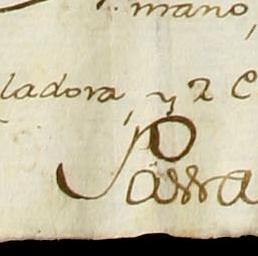 mano,
ladora, y 2 C
Parra